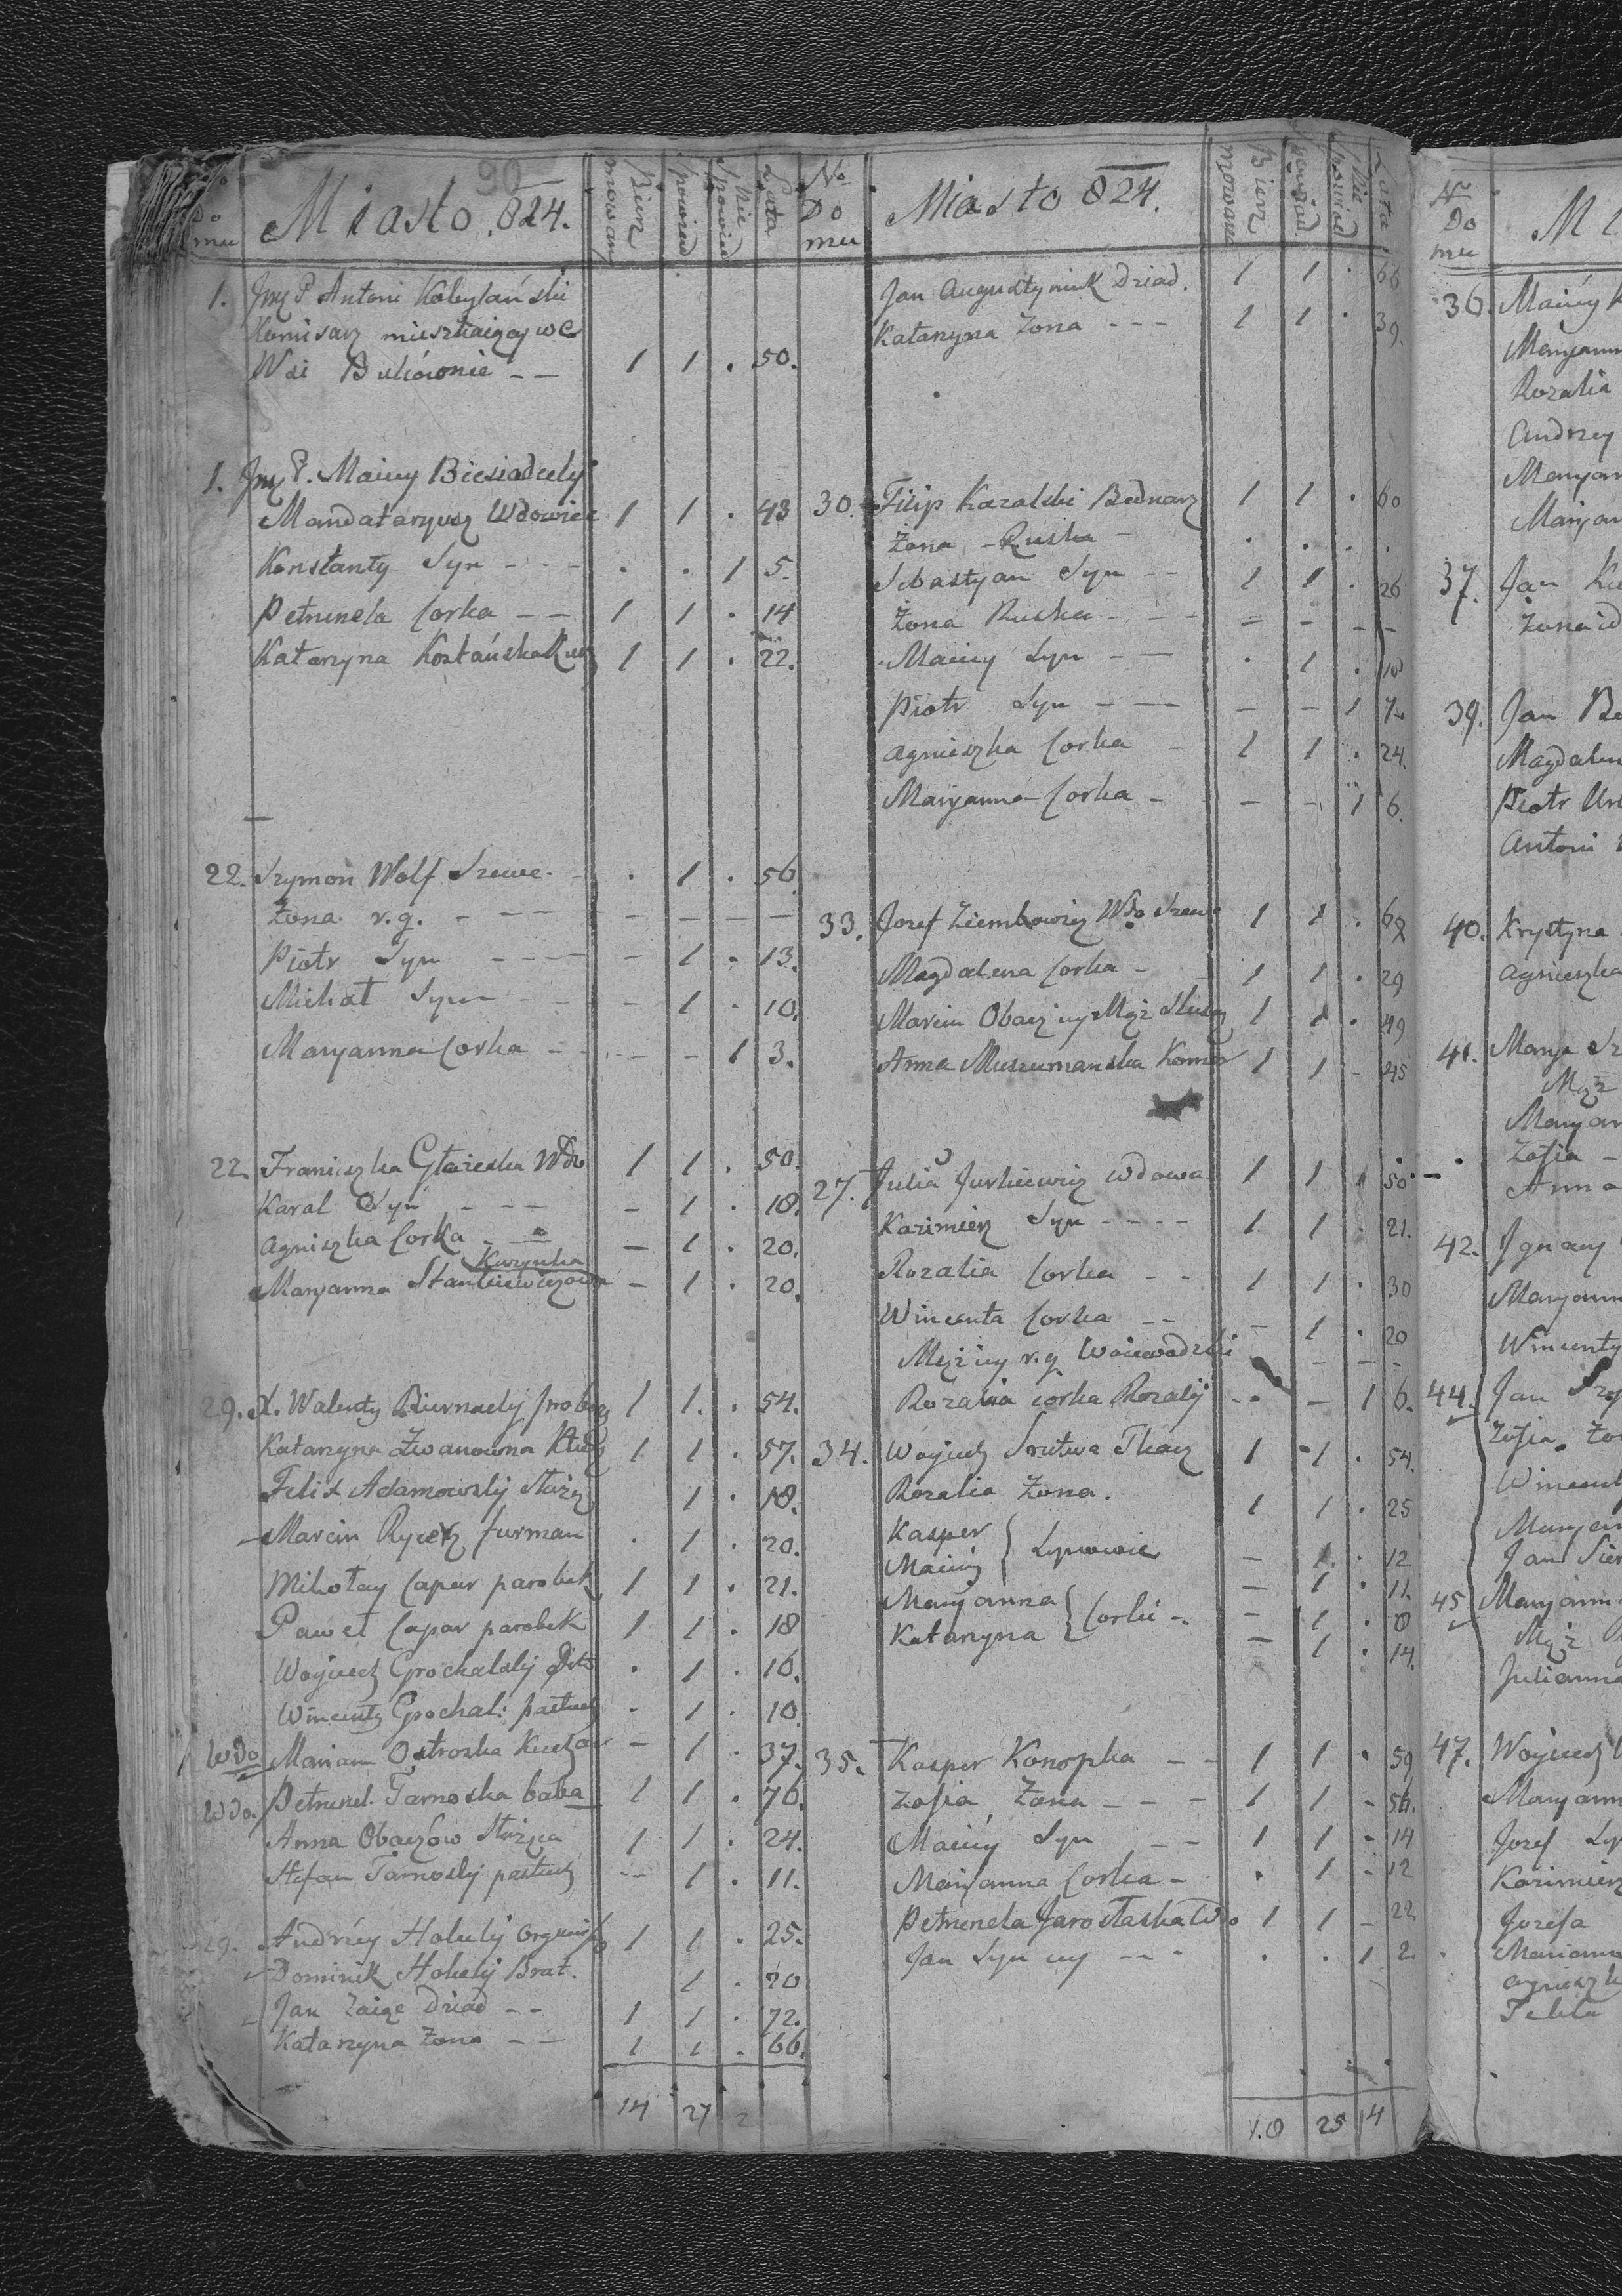 90
Do mu Miasto 824. Bierz mowan Spowied Nie Spowied Lata
1. Jmę P Antoni
Komisarz mieszkaiący we
Wsi 1 1 . 50.
1. Jmę P. Maciey Biesiadecky
Mandataryusz Wdowiec 1 1 . 43
Konstanty Syn - - - . . 1 5.
Petrunela Corka - - 1 1 . 14
Katarzyna Kostańska 1 1 . 22.
22. Szymon Wolf Szewc - . 1 . 56
Żona r. g. - - - - - - - -
Piotr Syn - - - - - 1 . 13.
Michał Syn - - - 1 . 10.
Maryanna Corka - - - - 1 3.
22. Franciszka Wdo 1 1 . 50.
Karol Syn - - - - 1 . 18.
Agniszka Corka - - - 1 . 20.
Kuzynka
Maryanna Stankiewiczowa - 1 . 20.
29. X. Walenty Biernacky prob 1 1 . 54.
Katarzyna Żwanowna Klucz 1 1 . 57.
Felix Adamowsky Służy 1 . 18.
Marcin Rycerz furman . 1 . 20.
Mikołay Capar parobek 1 1 . 21.
Paweł Capar parobek 1 1 . 18
Woyciech Grochalsky . 1 . 16.
Wincenty Grochal: pastuch - 1 . 10
Wdo Mariam Ostroska Kuchar - 1 . 37.
Wdo. Petrunel. Tarnoska baba 1 1 . 76.
Anna Obaczow Służąca 1 1 . 24.
Stefan Tarnosky pastuch - 1 . 11.
29. Andrzey Holecky Organist 1 1 . 25.
Dominik Holecky Brat. 1 . 20
Jan Zaiąc Dziad - - 1 1 . 72.
Katarzyna Żona - - 1 1 . 66.
14 27 2
No Do mu Miasto 824. Bierz mowan Spowiad Nie Spowiad Lata
Jan Augustyniuk Dziad. 1 1 . 66
Katarzyna Żona - - - 1 1 . 39.
30. Filip Kazalski Bednarz 1 1 . 60
Żona - Ruska - . . . .
Sebastyan Syn - - 1 1 . 26
Żona Ruska - - - - - - -
Maciey Syn - - . 1 . 10
Piotr Syn - - - - - 1 7.
Agnieszka Corka - 1 1 . 24.
Maryanna Corka - - - 1 6.
33. Jozef Ziembowicz Wdo Szewc 1 1 .
Magdalena Corka - 1 1 . 29
Marcin Obacz iey Mąż Służy 1 1 . 49
Anna Muszumanska Komor 1 1 - 45
27. Julia Jurkiewicz Wdowa 1 1 50
Kazimierz Syn - - - - 1 1 21.
Rozalia Corka - - 1 1 . 30
Wincenta Corka - - - 1 . 20
Mąż iey r. g. Woiewodzki - - - -
Rozalia corka Rozaly - - 1 6.
34. Woyciech Srutwa Tkacz 1 1 . 54.
Rozalia Żona. 1 1 . 25
Kasper
Maciey } Synowie - 1 . 12
Maryanna - 1 . 11.
Katarzyna } Corki - - 1 . 8
- 1 . 14.
35. Kasper Konopka - - 1 1 . 59
Zofia Żona - - - 1 1 - 56.
Maciey Syn - - 1 1 - 14
Maryanna Corka - . 1 - 12
Petrunela Jarosłaska Wdo 1 1 - 22
Jan Syn iey - - - . . 1 2.
18 25 4
No Do mu M
36. Maciey
Maryann
Rozalia
Andrzey
Maryan
Maryan
37. Jan
Żona
39. Jan
Magdalen
Piotr
Antoni
40. Krystyna
Agnieszka
41. Marya
Mąż
Maryan
Zofia
Anna
42. Ignacy
Maryann
Wincenty
44. Jan
Zofia Żo
Wincent
Maryan
Jan
45 Maryann
Mąż
Julianna
47. Woyciech
Maryann
Jozef Sy
Kazimierz
Jozefa
Marianna
Agnieszk
Tekla